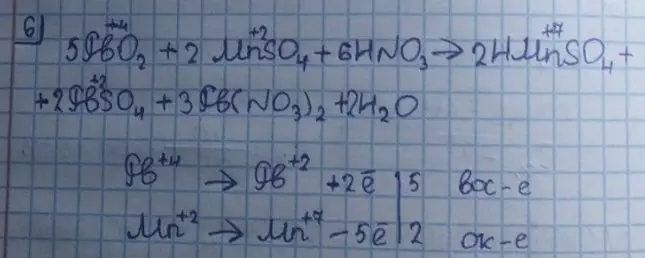 б) 5PbO₂ + 2MnSO₄ + 6HNO₃ → 2HMnSO₄ +
+ 2PbSO₄ + 3Pb(NO₃)₂ + 2H₂O
Pb⁺⁴ → Pb⁺² + 2ē | 5 вос-е
Mn⁺² → Mn⁺⁷ - 5ē | 2 ок-е